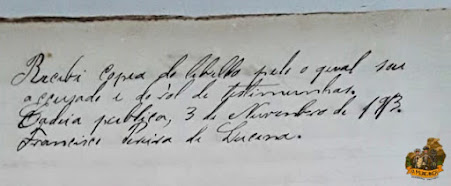 Recebi copea do libello pelo o qual sou
accusado e do rol de testimunhas.
Cadeia publica, 3 de Novembro de 1913.
Francisco Pereira de Lucena.